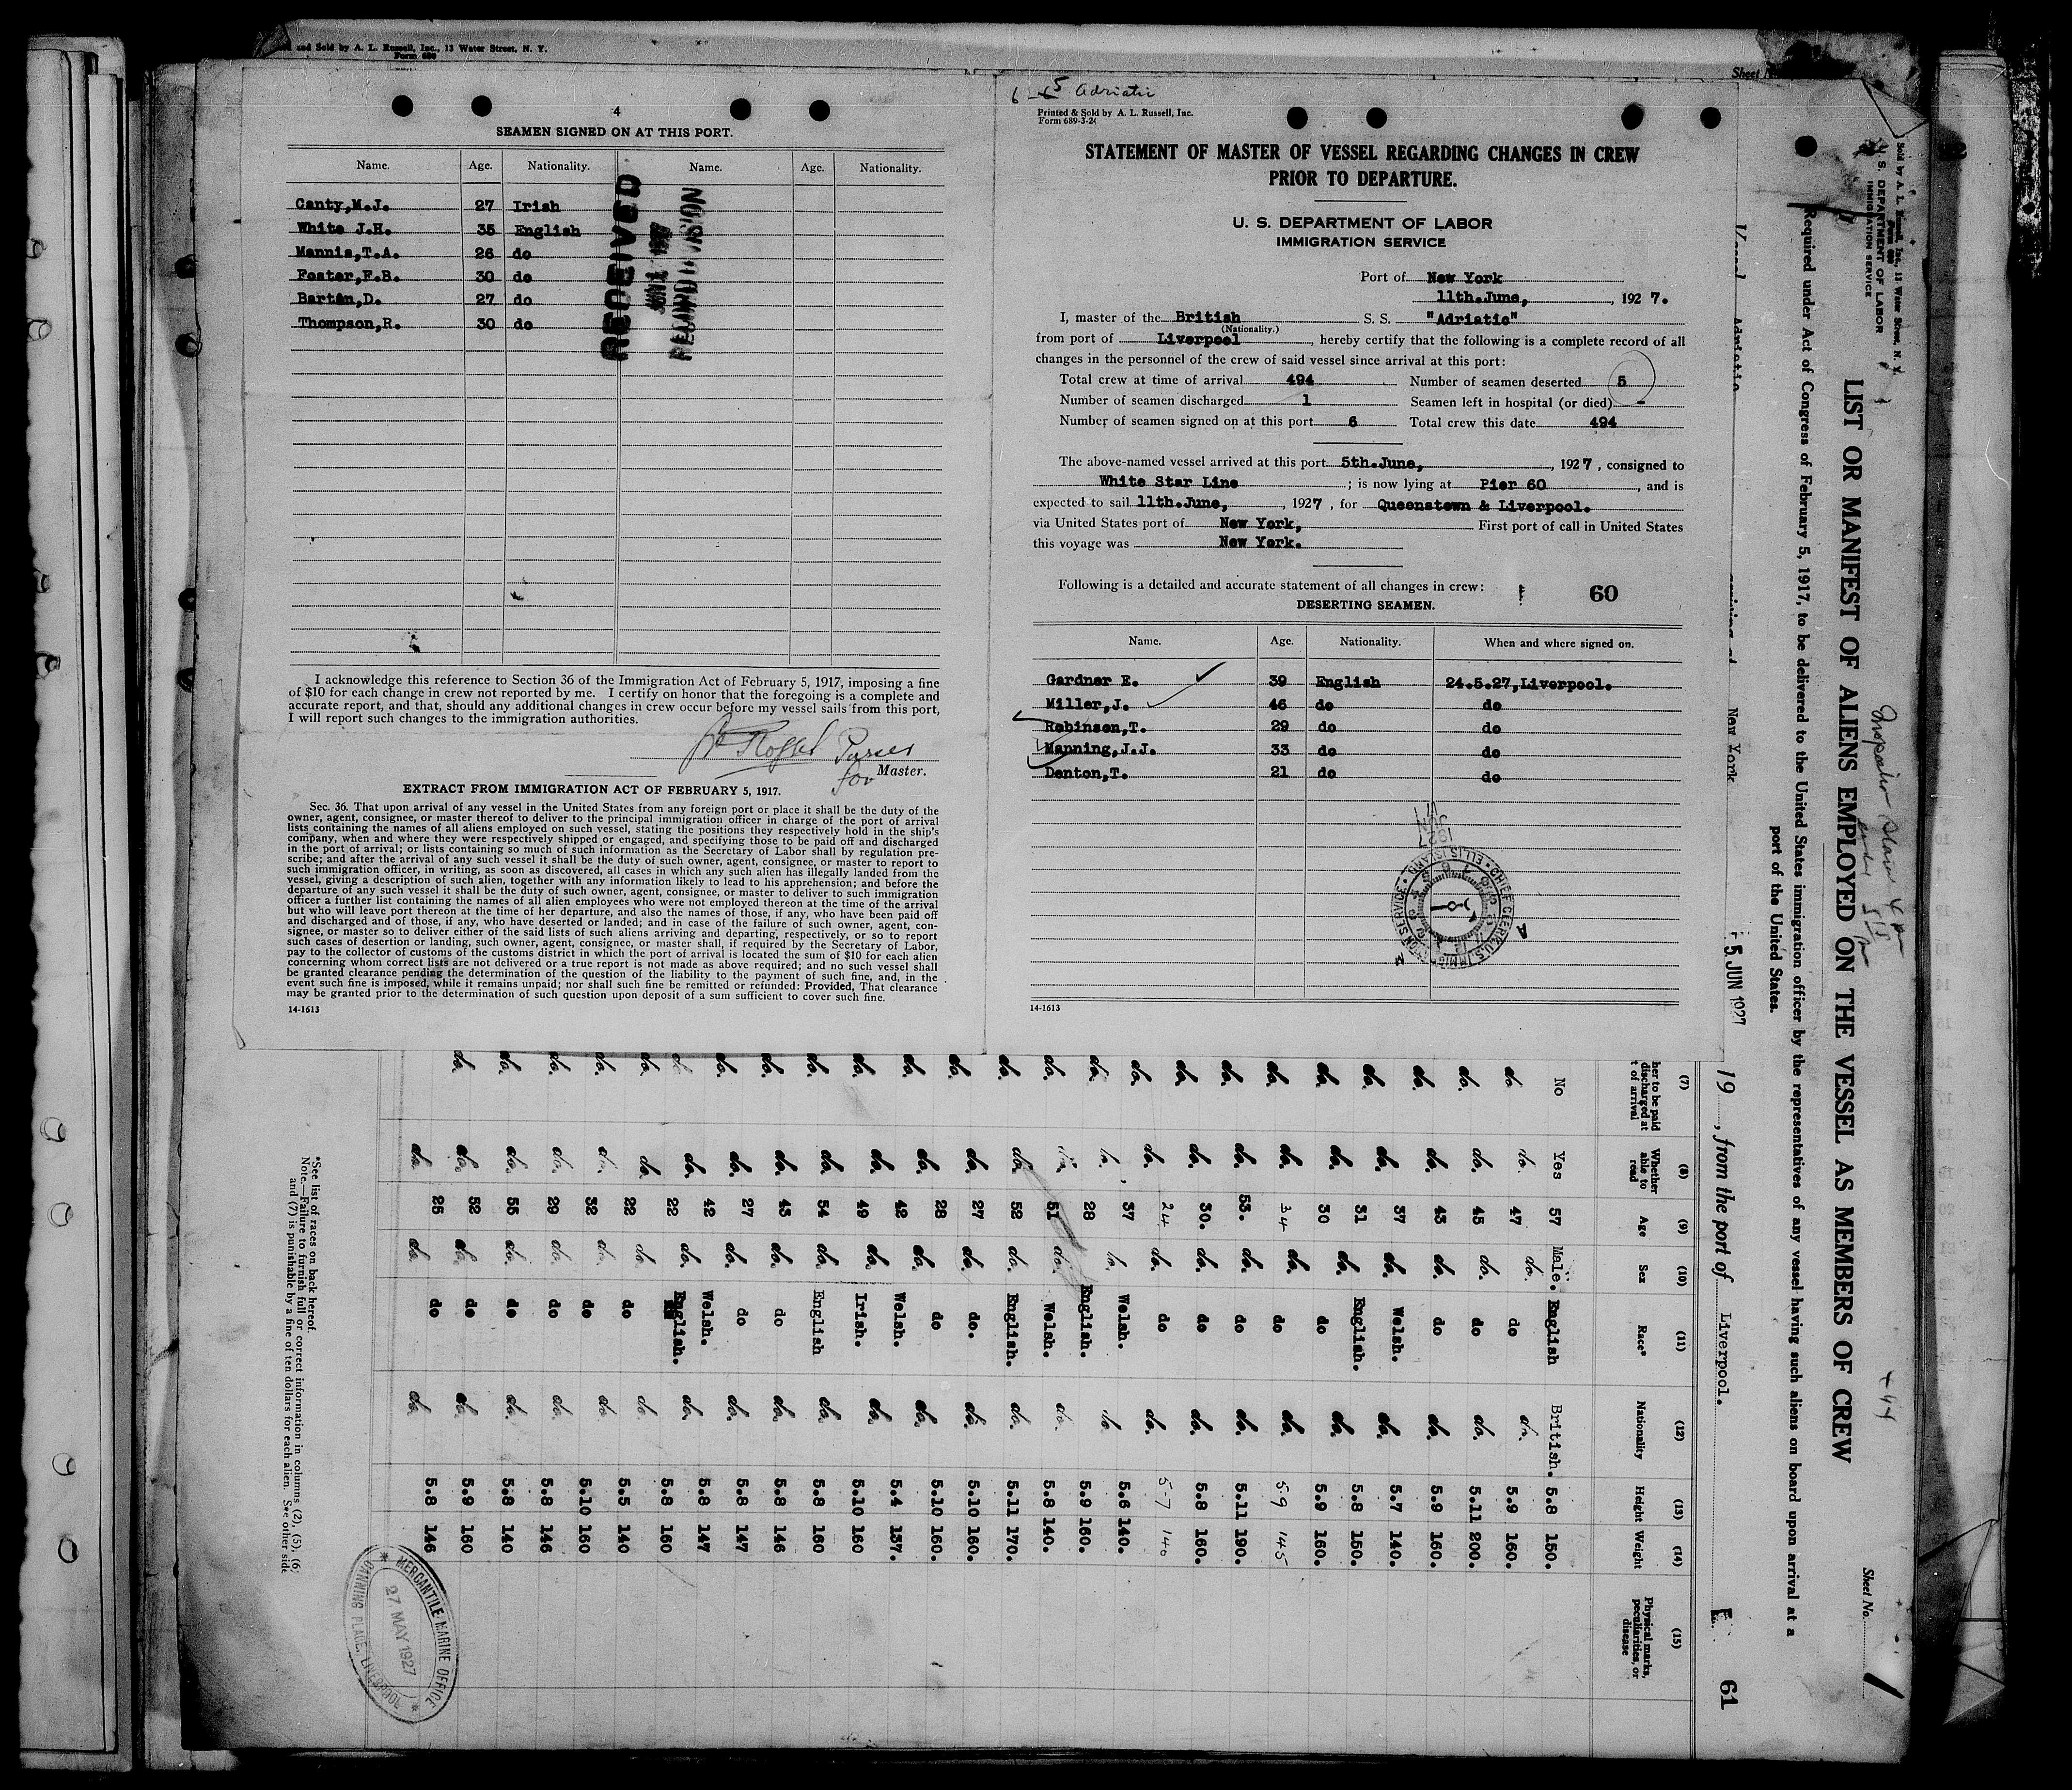 and Sold by A. L. Russell, Inc., 13 Water Street, N. Y.
Form 689
4
SEAMEN SIGNED ON AT THIS PORT.
Name. Age. Nationality. Name. Age. Nationality.
Canty,M.J. 27 Irish
White J.H. 35 English
Mannis,T.A. 26 do
Foster,F.B. 30 do
Barton,D. 27 do
Thompson,R. 30 do
RECEIVED
RECORD DIVISION
I acknowledge this reference to Section 36 of the Immigration Act of February 5, 1917, imposing a fine
of $10 for each change in crew not reported by me. I certify on honor that the foregoing is a complete and
accurate report, and that, should any additional changes in crew occur before my vessel sails from this port,
I will report such changes to the immigration authorities.
Purser
for Master.
EXTRACT FROM IMMIGRATION ACT OF FEBRUARY 5, 1917.
Sec. 36. That upon arrival of any vessel in the United States from any foreign port or place it shall be the duty of the
owner, agent, consignee, or master thereof to deliver to the principal immigration officer in charge of the port of arrival
lists containing the names of all aliens employed on such vessel, stating the positions they respectively hold in the ship's
company, when and where they were respectively shipped or engaged, and specifying those to be paid off and discharged
in the port of arrival; or lists containing so much of such information as the Secretary of Labor shall by regulation pre-
scribe; and after the arrival of any such vessel it shall be the duty of such owner, agent, consignee, or master to report to
such immigration officer, in writing, as soon as discovered, all cases in which any such alien has illegally landed from the
vessel, giving a description of such alien, together with any information likely to lead to his apprehension; and before the
departure of any such vessel it shall be the duty of such owner, agent, consignee, or master to deliver to such immigration
officer a further list containing the names of all alien employees who were not employed thereon at the time of the arrival
but who will leave port thereon at the time of her departure, and also the names of those, if any, who have been paid off
and discharged and of those, if any, who have deserted or landed; and in case of the failure of such owner, agent, con-
signee, or master so to deliver either of the said lists of such aliens arriving and departing, respectively, or so to report
such cases of desertion or landing, such owner, agent, consignee, or master shall, if required by the Secretary of Labor,
pay to the collector of customs of the customs district in which the port of arrival is located the sum of $10 for each alien
concerning whom correct lists are not delivered or a true report is not made as above required; and no such vessel shall
be granted clearance pending the determination of the question of the liability to the payment of such fine, and, in the
event such fine is imposed, while it remains unpaid; nor shall such fine be remitted or refunded: Provided, That clearance
may be granted prior to the determination of such question upon deposit of a sum sufficient to cover such fine.
14-1613
6 5 Adriatic
Printed & Sold by A. L. Russell, Inc.
Form 689-3-26
STATEMENT OF MASTER OF VESSEL REGARDING CHANGES IN CREW
PRIOR TO DEPARTURE.
U. S. DEPARTMENT OF LABOR
IMMIGRATION SERVICE
Port of New York
11th.June, , 1927.
I, master of the British S. S. "Adriatic"
(Nationality.)
from port of Liverpool , hereby certify that the following is a complete record of all
changes in the personnel of the crew of said vessel since arrival at this port:
Total crew at time of arrival 494 Number of seamen deserted 5
Number of seamen discharged 1 Seamen left in hospital (or died) -
Number of seamen signed on at this port 6 Total crew this date 494
The above-named vessel arrived at this port 5th.June, , 1927, consigned to
White Star Line ; is now lying at Pier 60 , and is
expected to sail 11th.June, , 1927, for Queenstown & Liverpool.
via United States port of New York, First port of call in United States
this voyage was New York.
Following is a detailed and accurate statement of all changes in crew: 60
DESERTING SEAMEN.
Name. Age. Nationality. When and where signed on.
Gardner E. 39 English 24.5.27,Liverpool.
Miller,J. 46 do do
Robinson,T. 29 do do
Manning,J.J. 33 do do
Denton,T. 21 do do
CHIEF CLERK U.S. IMMIGRATION SERVICE ELLIS ISLAND
14-1613
Sheet No. 1
Sold by A. L. Russell, Inc., 13 Water Street, N. Y.
Form 689
U. S. DEPARTMENT OF LABOR
IMMIGRATION SERVICE
LIST OR MANIFEST OF ALIENS EMPLOYED ON THE VESSEL AS MEMBERS OF CREW
Required under Act of Congress of February 5, 1917, to be delivered to the United States immigration officer by the representatives of any vessel having such aliens on board upon arrival at a
port of the United States.
Vessel Adriatic New York 5 JUN 1927 19 , from the port of Liverpool. E. 61
(7) (8) (9) (10) (11) (12) (13) (14) (15)
her to be paid discharged at t of arrival Whether able to read Age Sex Race* Nationality Height Weight Physical marks, peculiarities, or disease
No Yes 57 Male. English British. 5.8 150.
do. do. 47 do. do do. 5.9 160.
do. do. 45 do. do do. 5.11 200.
do. do. 43 do. do do. 5.9 160.
do. do. 37 do. Welsh. do. 5.7 140.
do. do. 31 do. English. do. 5.8 150.
do. do. 30 do. do do. 5.9 160.
do. do. 34 do. do do. 5.9 145
do. do. 53. do. do do. 5.11 190.
do. do. 30. do. do do. 5.8 160.
do. do. 24 do. do do. 5-7 140
do. do. 37 do. Welsh. do. 5.6 140.
do. do. 28 do. English. do. 5.9 160.
do. do. 51 do. Welsh. do. 5.8 140.
do. do. 52 do. English. do. 5.11 170.
do. do. 27 do. do. do. 5.10 160.
do. do. 28 do. do do. 5.10 160.
do. do. 42 do. Welsh. do. 5.4 137.
do. do. 49 do. Irish. do. 5.10 160
do. do. 54 do. English do. 5.8 160
do. do. 43 do. do do. 5.8 146
do. do. 27 do. do do. 5.8 147
do. do. 42 do. Welsh. do. 5.8 147
do. do. 22 do. English. do. 5.8 160
do. do. 22 do. do do. 5.5 140
do. do. 32 do. do do. 5.10 160
do. do. 29 do. do do. 5.8 146
do. do. 55 do. do do. 5.8 140
do. do. 52 do. do do. 5.9 160
do. 25 do. do do. 5.8 146
*See list of races on back hereof.
Note.—Failure to furnish full or correct information in columns (2), (5), (6)
and (7) is punishable by a fine of ten dollars for each alien. See other side
MERCANTILE MARINE OFFICE
27 MAY 1927
CANNING PLACE, LIVERPOOL